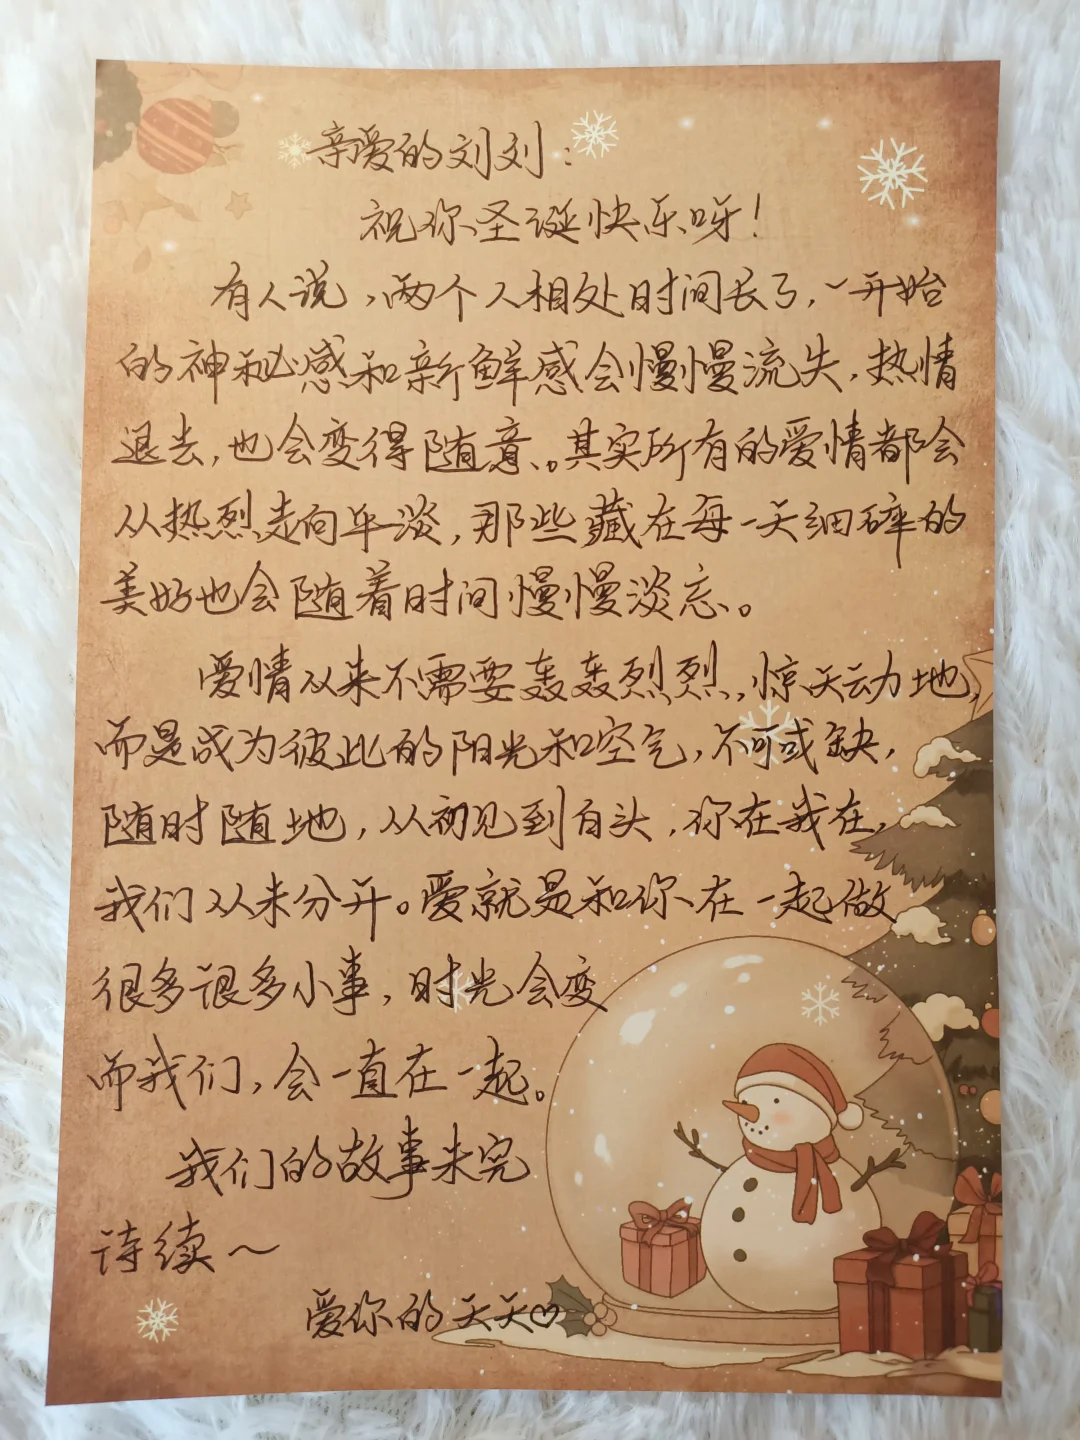 亲爱的刘刘：
祝你圣诞快乐呀！
有人说，两个人相处时间长了，一开始
的神秘感和新鲜感会慢慢流失，热情
退去，也会变得随意。其实所有的爱情都会
从热烈走向平淡，那些藏在每一天细碎的
美好也会随着时间慢慢淡忘。
爱情从来不需要轰轰烈烈，惊天动地，
而是成为彼此的阳光和空气，不可或缺，
随时随地，从初见到白头，你在我在，
我们从未分开。爱就是和你在一起做
很多很多小事，时光会变
而我们，会一直在一起。
我们的故事未完
待续～
爱你的天天♡